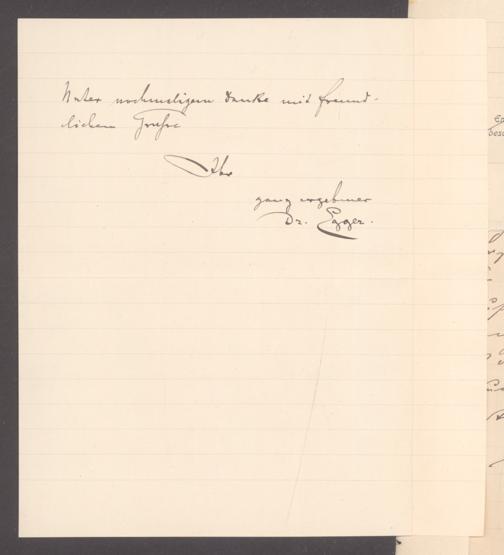 Unter nochmaligem Danke mit freund-
lichem Gruße
Ihr
ganz ergebener
Dr. Egger.